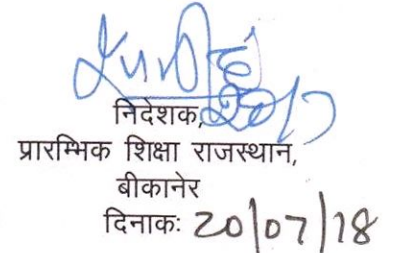 निदेशक,
प्रारम्भिक शिक्षा राजस्थान,
बीकानेर
दिनाकः 20/07/18